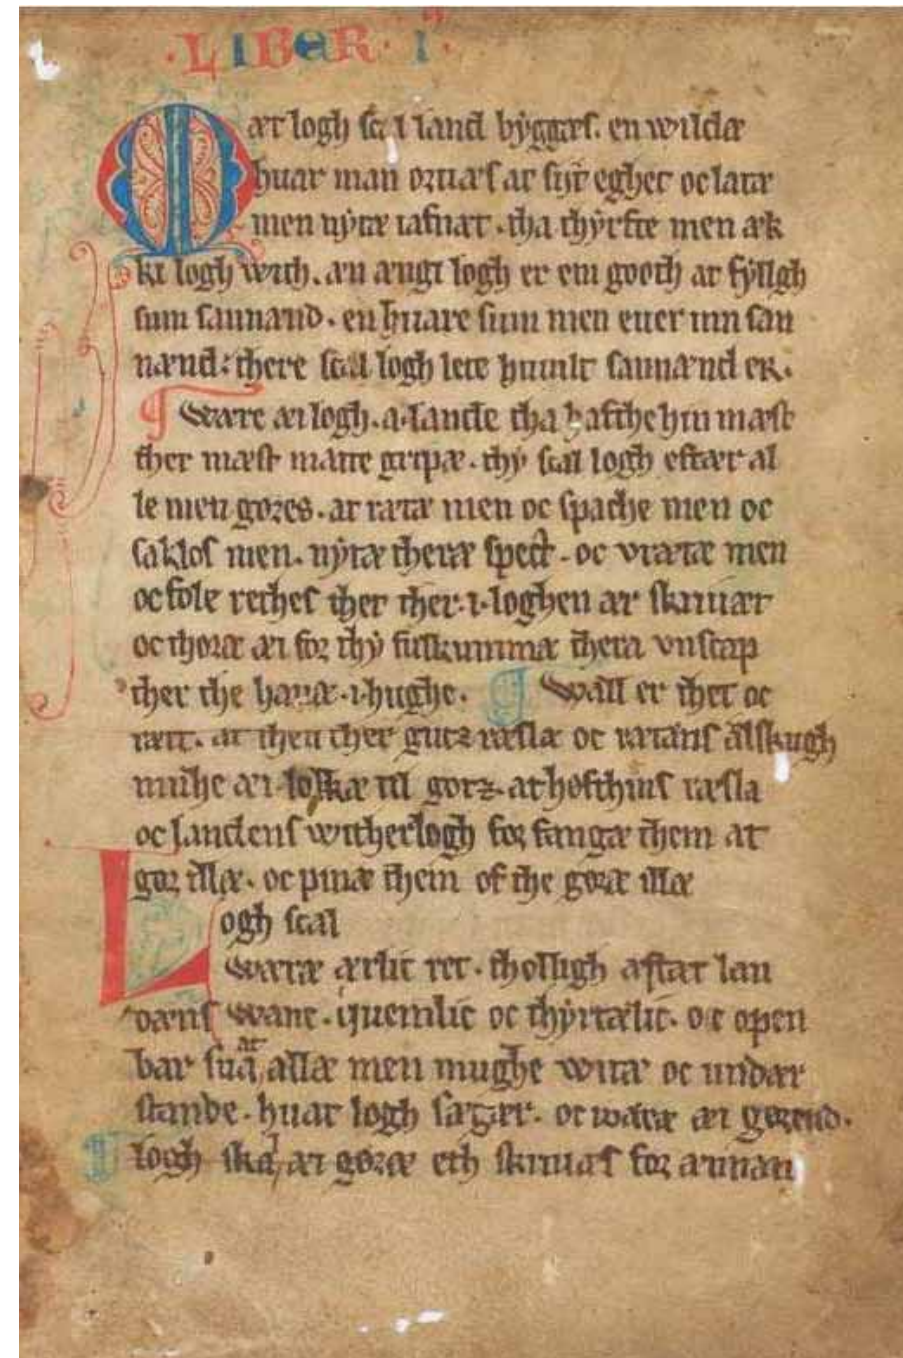 LIBER I
Mæt logh scal land bÿggæs. en wildæ
huar man oruæs at sijt eghet oc latæ
men nÿtæ iafnæt. tha thÿrfte men æk
ki logh with. æn ængi logh er em gooth at fÿllgh
sum sannænd. en huare sum men euer um san
nænd: there scal logh lete huilt sannænd er.
¶ Ware æi logh. a. lande tha hafthe hin mæst
ther mæst matte gripæ. thÿ scal logh eftær al
le men gores. at rætæ men oc spache men oc
saklos men. nÿtæ theræ spect. oc vrætæ men
oc fole rethes ther ther. i. loghen ær skriuæt
oc thoræ æi for thÿ fulkummæ thera vnscap
ther the hauæ. i. hughe. ¶ Wall er thet oc
rætt. at then ther gutz ræslæ oc rætæns ælskugh
mughe æi loskæ til gotz. at hofthins ræsla
oc landens witherlogh for fangæ them at
gor illæ. oc pinæ them of the goræ illæ
Logh scal
wæræ ærlic ret. thollich æftær lan
dæns wane. quemlic oc thÿrtælic. oc open
bar suа at allæ men mughe witæ oc undær
stande. huat logh sægær. oc wæræ æi gerend.
¶ logh skal æi goræ eth skriuæs for annæn